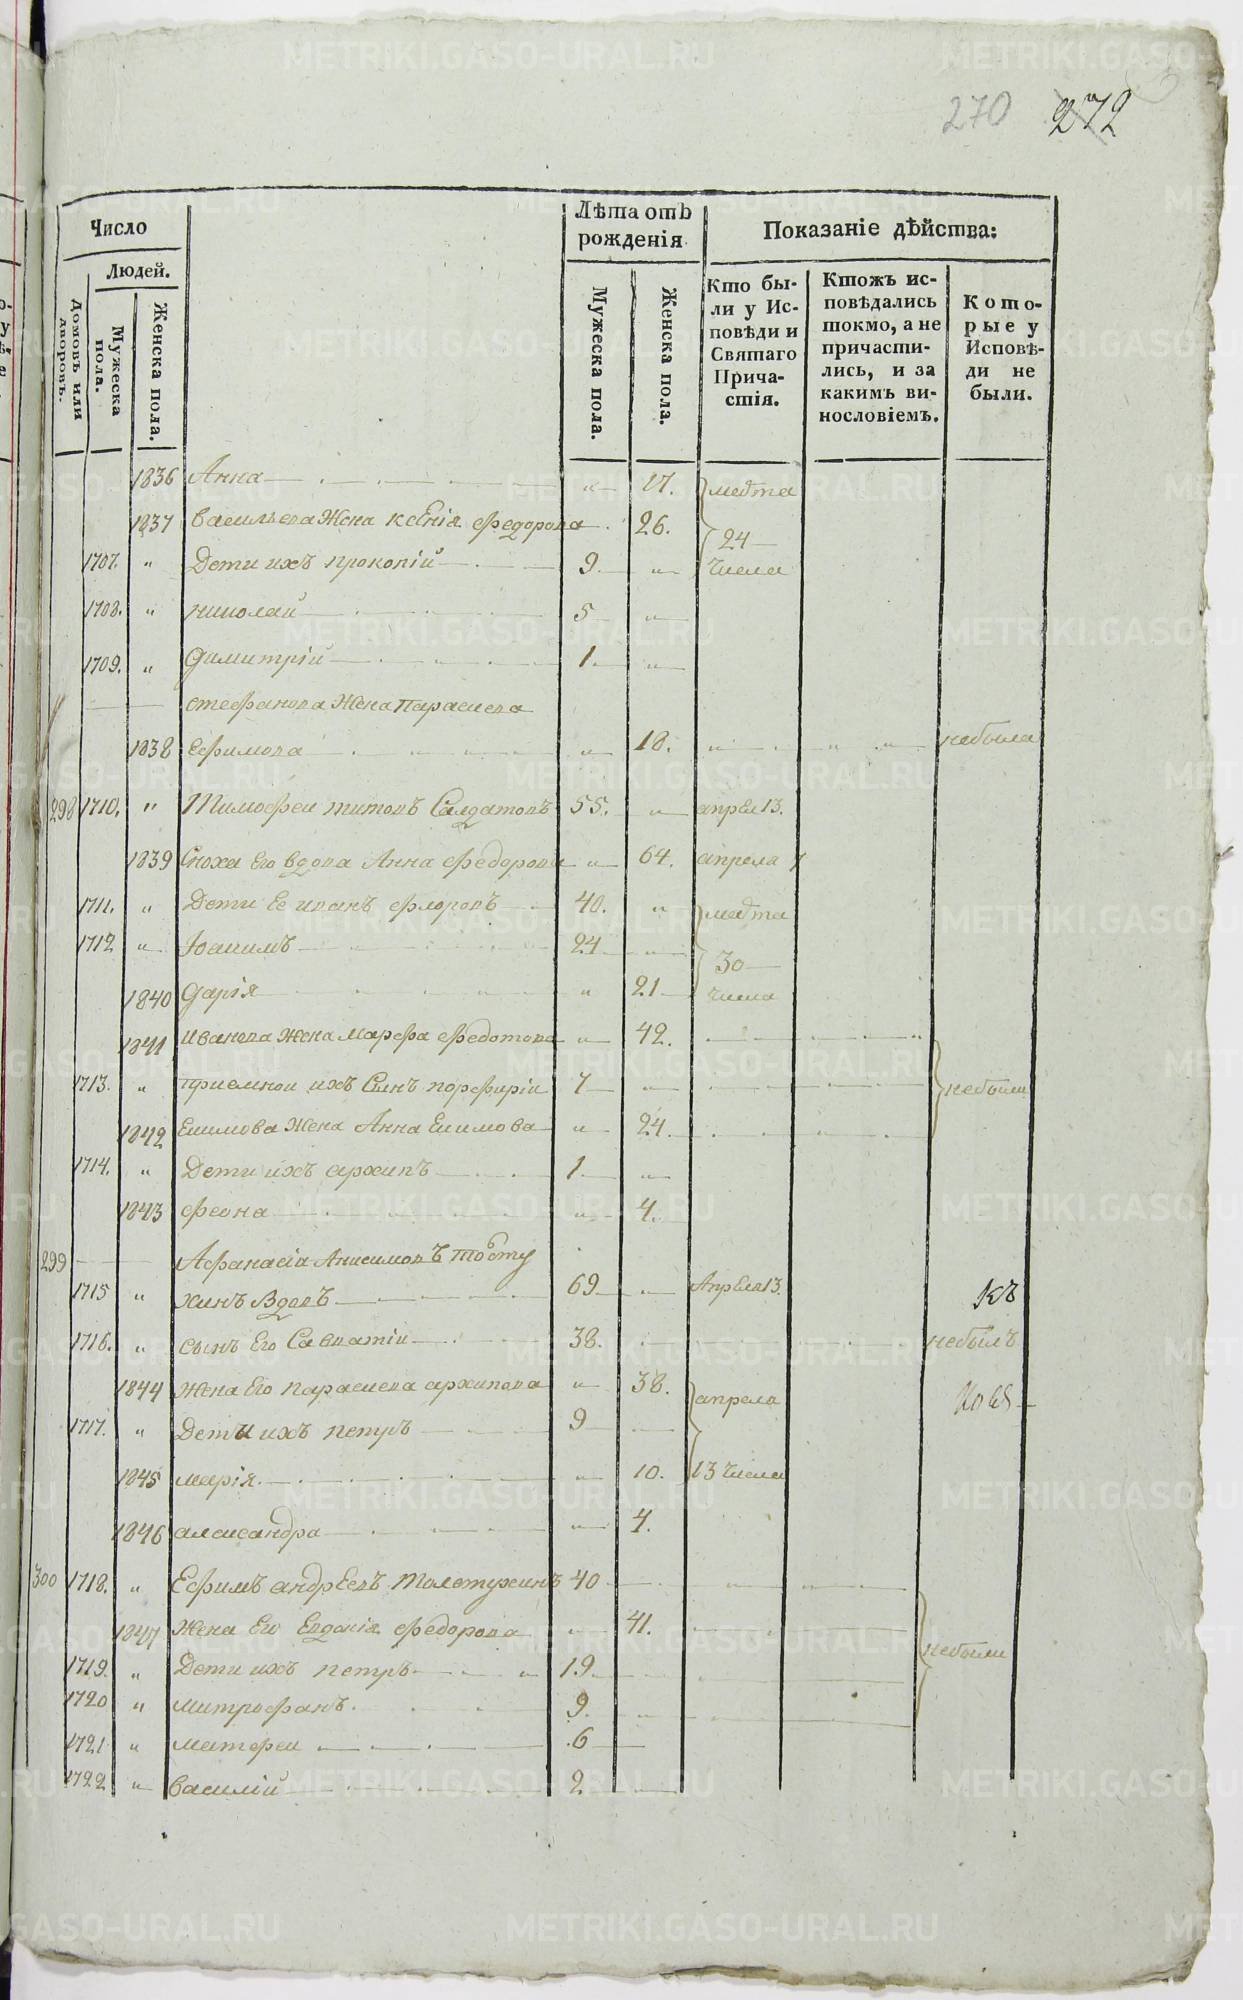 270 272
Число
Людей.
Домовъ или дворовъ.
Мужеска пола.
Женска пола.
Лѣта отъ рожденія.
Мужеска пола.
Женска пола.
Показаніе дѣйства:
Кто бы-
ли у Ис-
повѣди и
Святаго
Прича-
стія.
Ктожъ ис-
повѣдались
токмо, а не
причасти-
лись, и за
какимъ ви-
нословіемъ.
Кото-
рые у
Исповѣ-
ди не
были.
1836 Анна " 17. марта
1837 васильева Жена ксенія федорова 26. 24
1707. " Дети ихъ прокопій 9. " числа
1708. " николай 5 "
1709. " Димитрій 1. "
стефанова Жена Парасиева
1838 Ефимова " 18. " " " небыла
298 1710. " Тимофеи титовъ Салдатовъ 55. " апрел 13.
1839 Сноха Его вдова Анна Федорова " 64. апрела 7
1711. " Дети Ее иванъ флоровъ 40. " марта
1712 " Іоакимъ 24 " 30
1840 Дарія " 21 числа
1841 Иванова Жена Марфа Федотова " 42.
1713. " приемнои ихъ Сынъ порфиріи 7 " небыли
1842 Екимова Жена Анна Екимова " 24.
1714. " Дети ихъ архипъ 1 "
1843 феона " 4.
299 Афанасіа Анисимовъ
1715 " хинъ Вдовъ 69 " Апреля 13. къ
1716. " сынъ Его Савватіи 38. небылъ
1844 Жена Его Парасиева архипова " 38. апрела
1717. " Деты ихъ петръ 9
1845 марія " 10. 13 числа
1846 александра " 4.
300 1718. " Ефимъ андреевъ Толстухинъ 40
1847 Жена Его Евдокія Федорова 41.
1719. " Дети ихъ петръ 19. небыли
1720 " митрофанъ 9. "
1721 " матфеи 6
1722 " василій 2